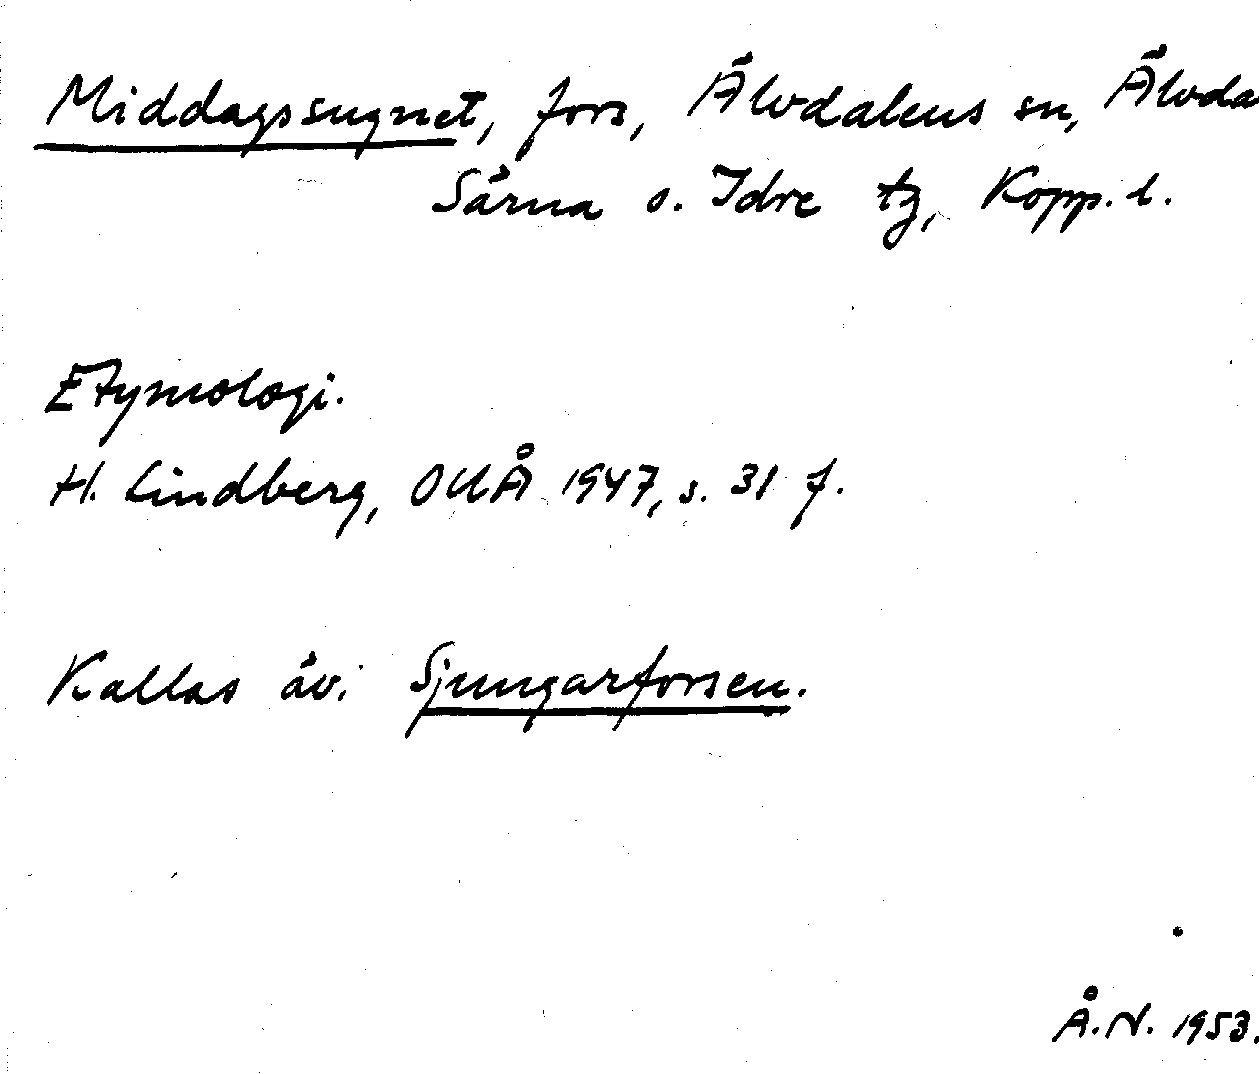 Middagssugnet, fors, Älvdalens sn, Älvda
Särna o. Idre tg, Kopp. l.
Etymologi.
H. Lindberg, OUÅ 1947, s. 31 f.
Kallas äv. Sjungarforsen.
Å.N. 1953.